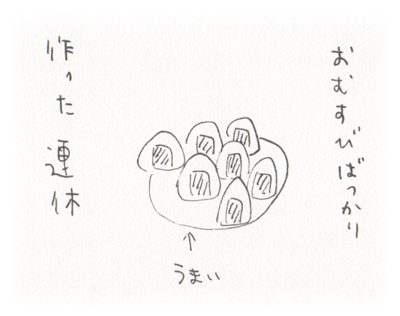 おむすびばっかり
作った連休
↑
うまい